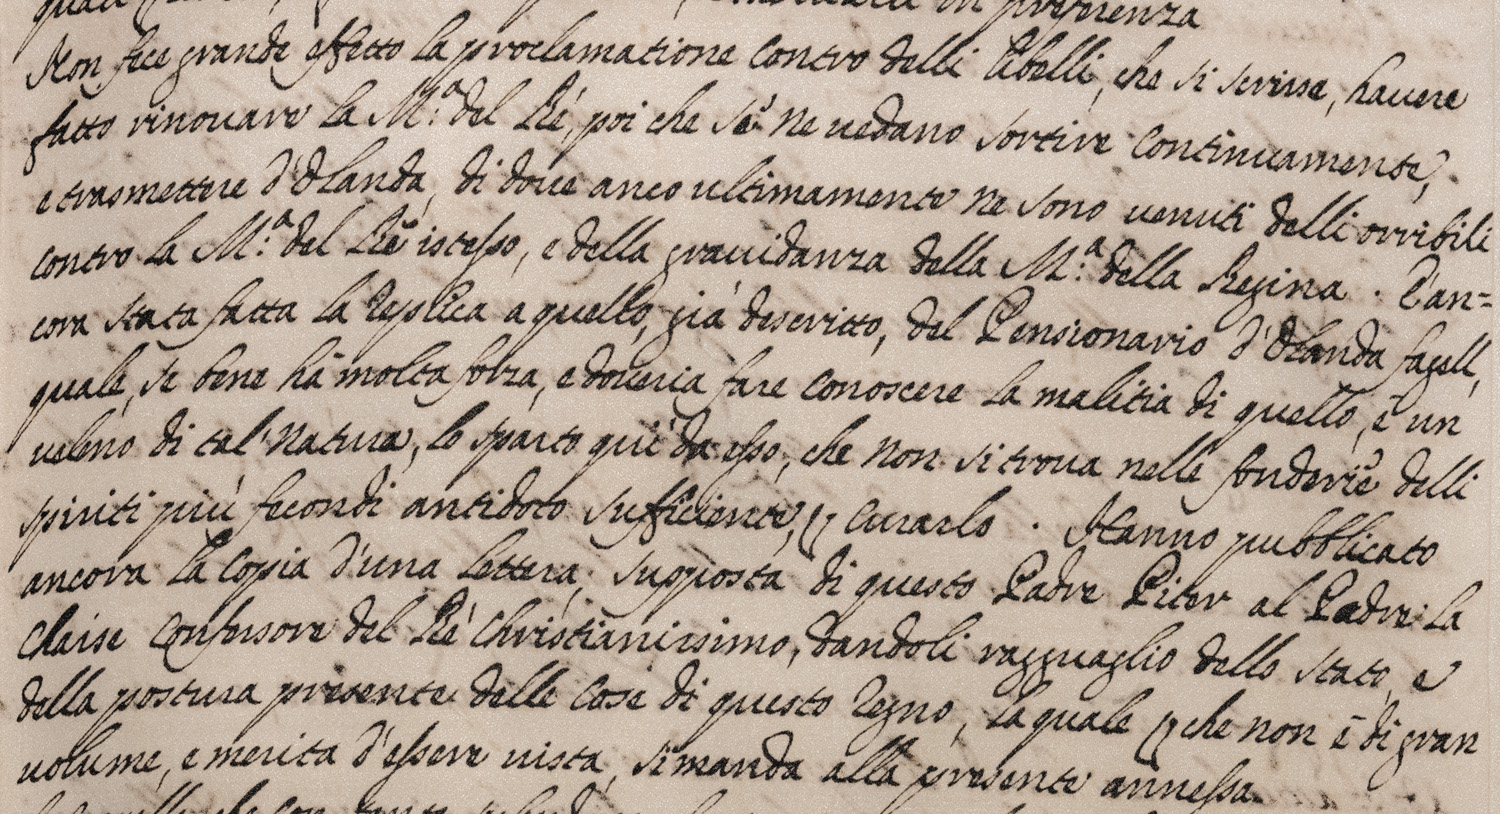 in preferenza
Non fece grande effetto la proclamatione contro delli libelli, che si scrisse, havere
fatto rinovare la M.ᵃ del Ré, poi che se ne vedano sortire continuamente,
e trasmettere d'Olanda, di dove anco ultimamente ne sono venuti delli orribili
contro la M.ᵃ del Ré istesso, e della gravidanza della M.ᵃ della Regina. È an=
cora stata fatta la replica a quello, già descritto, del Pensionario d'Olanda fagell,
quale, se bene hà molta forza, e doveria fare conoscere la malitia di quello, è un
veleno di tal natura, lo sparto qui da esso, che non si trova nelle fonderie delli
spiriti più fecondi antidoto sufficiente, ꝑ curarlo. Hanno pubblicato
ancora la Copia d'una lettera, supposta di questo Padre Piter al Padre la
Chaise Confessore del Ré Christianissimo, dandoli ragguaglio dello stato, e
della postura presente delle Cose di questo Regno, la quale ꝑche non è di gran
volume, e merita d'essere vista, si manda alla presente annessa.
che con tanto